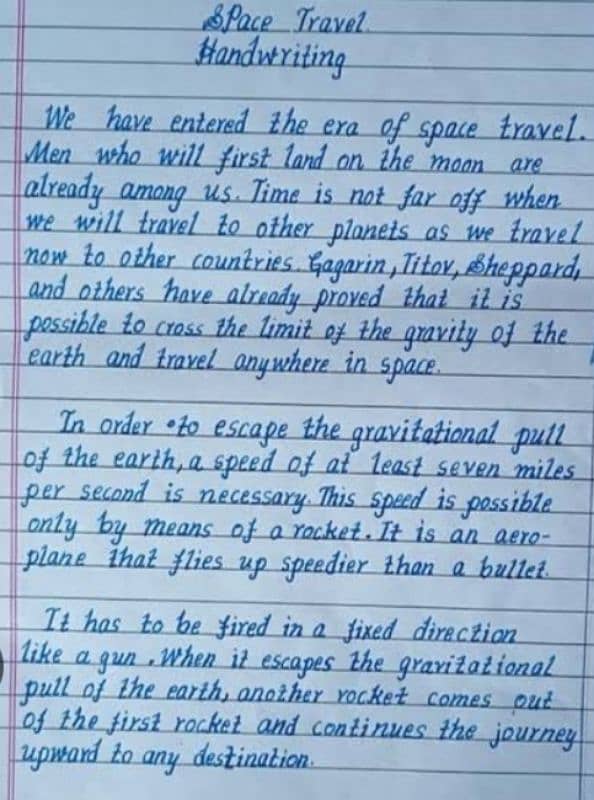 Space Travel
Handwriting
We have entered the era of space travel.
Men who will first land on the moon are
already among us. Time is not far off when
we will travel to other planets as we travel
now to other countries. Gagarin, Titov, Sheppard,
and others have already proved that it is
possible to cross the limit of the gravity of the
earth and travel anywhere in space.
In order to escape the gravitational pull
of the earth, a speed of at least seven miles
per second is necessary. This speed is possible
only by means of a rocket. It is an aero-
plane that flies up speedier than a bullet.
It has to be fired in a fixed direction
like a gun. When it escapes the gravitational
pull of the earth, another rocket comes out
of the first rocket and continues the journey
upward to any destination.